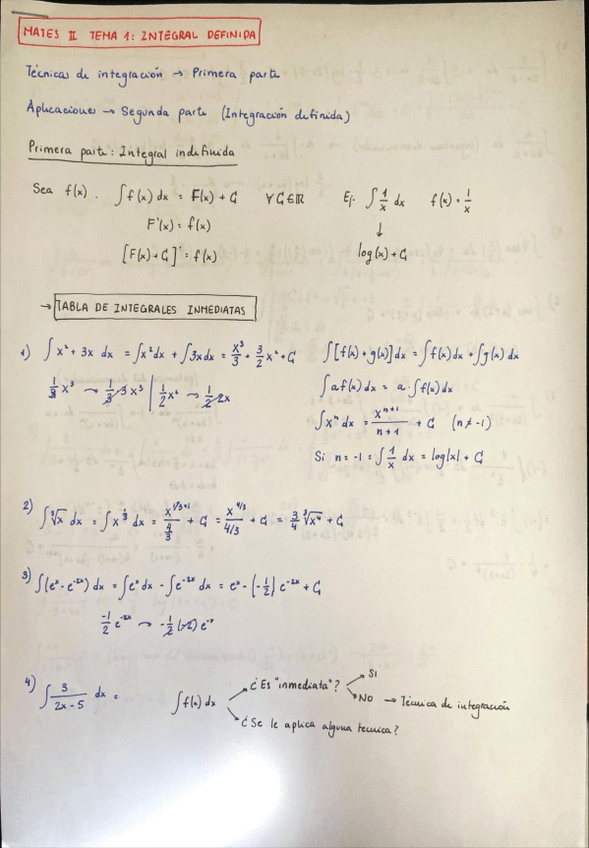 MATES II TEMA 1: INTEGRAL DEFINIDA
Técnicas de integración → Primera parte
Aplicaciones → Segunda parte (Integración definida)
Primera parte: Integral indefinida
Sea f(x). ∫f(x) dx = F(x) + C ∀C∈ℝ Ej. ∫1/x dx f(x) = 1/x
F'(x) = f(x) ↓
[F(x) + C]' = f(x) log(x) + C
→ TABLA DE INTEGRALES INMEDIATAS
1) ∫x² + 3x dx = ∫x²dx + ∫3xdx = x³/3 + 3/2 x² + C ∫[f(x) + g(x)]dx = ∫f(x)dx + ∫g(x)dx
1/3 x³ → 1/3 · 3x² | 1/2 x² → 1/2 · 2x ∫a f(x)dx = a · ∫f(x)dx
∫xⁿ dx = xⁿ⁺¹/(n+1) + C (n ≠ -1)
Si n = -1 = ∫1/x dx = log|x| + C
2) ∫³√x dx = ∫x^(1/3) dx = x^(1/3+1)/(4/3) + C = x^(4/3)/(4/3) + C = 3/4 ³√x⁴ + C
3) ∫(eˣ - e⁻²ˣ) dx = ∫eˣ dx - ∫e⁻²ˣ dx = eˣ - (-1/2) e⁻²ˣ + C
-1/2 e⁻²ˣ → -1/2 (-2) e⁻ˣ
4) ∫3/(2x - 5) dx = ∫f(x) dx ¿Es "inmediata"? SI
NO → Técnica de integración
¿Se le aplica alguna tecnica?